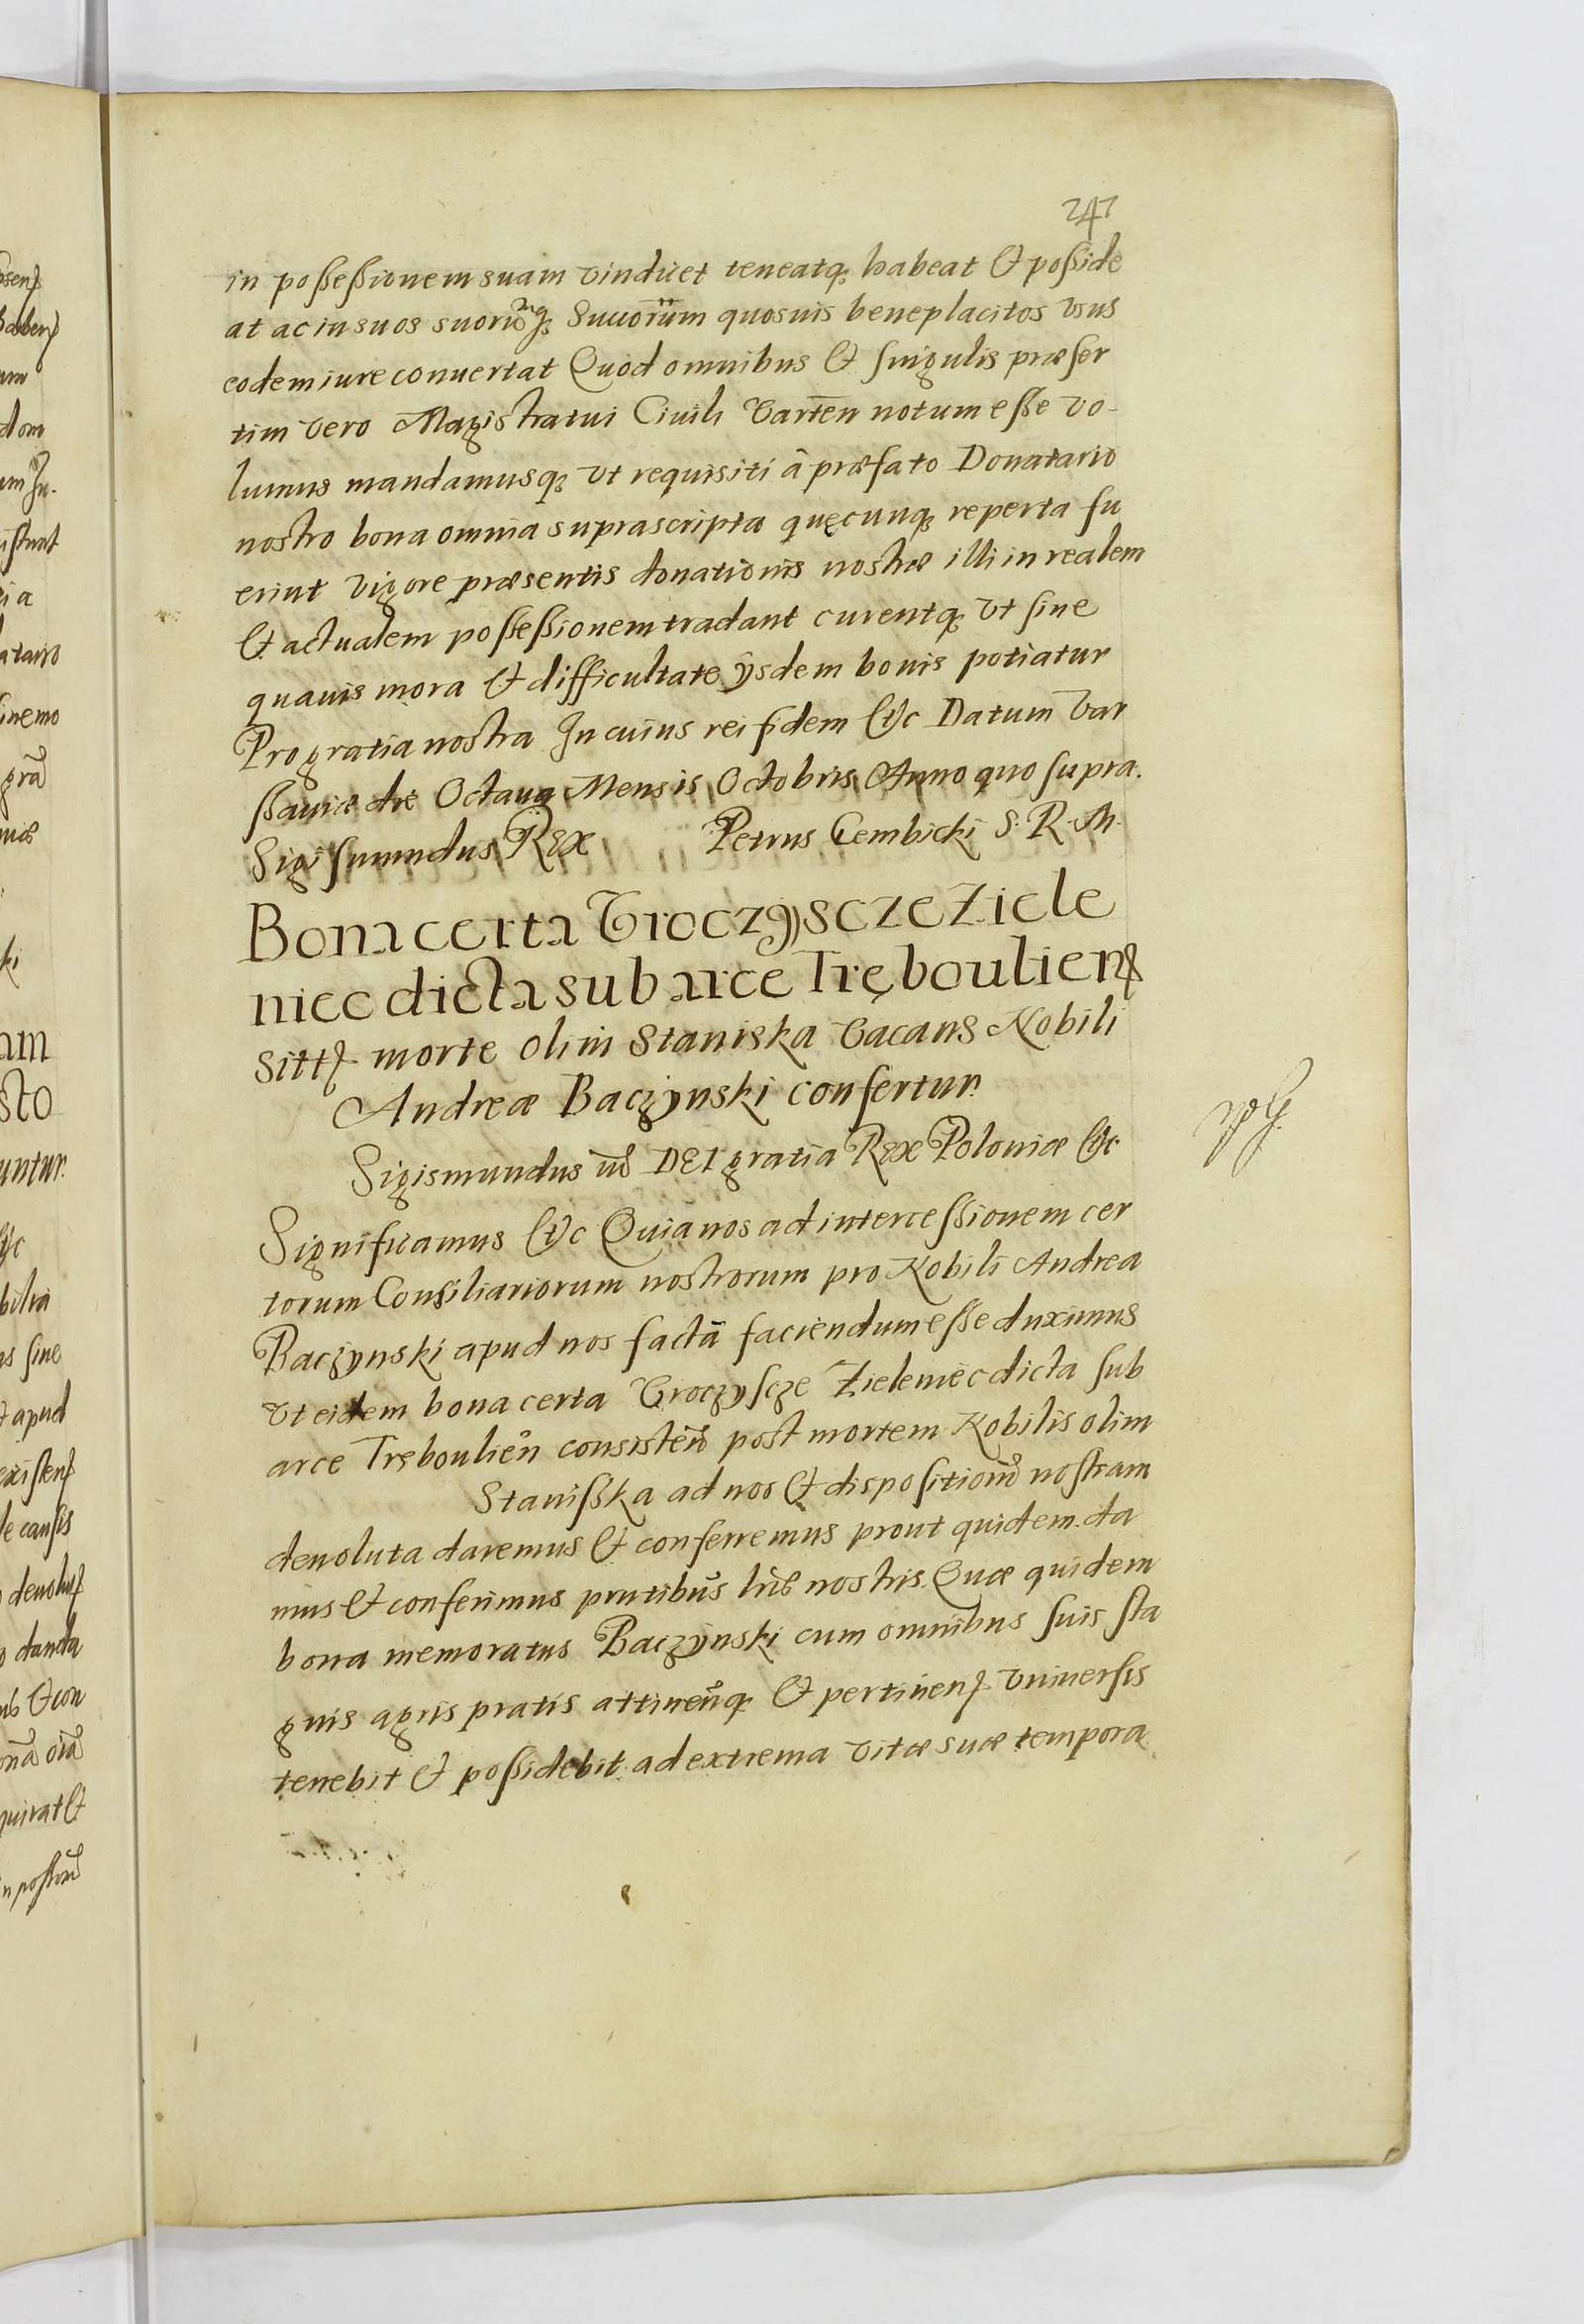 247
in possessionem suam vindicet teneatq; habeat & posside
at ac in suos suorūq; Succorum quosuis beneplacitos vsus
eodem iure conuertat Quod omnibus & singulis præser
tim vero Magistratui Ciuili Varten̄ notum esse vo-
lumus mandamusq; vt requisiti â præfato Donatario
nostro bona omnia suprascripta quęcunq; reperta fu
erint vigore præsentis donationis nostræ illi in realem
& actualem possessionem tradant curentq; vt sine
quauis mora & difficultate ysdem bonis potiatur
Pro gratia nostra In cuius rei fidem &c Datum Var
ssauiæ die Octaua Mensis Octobris Anno quo supra.
Sigismundus Rex Petrus Gembicki S: R. M.
Bona certa Groczyscze Ziele
niec dicta sub arce Tręboulien
sitt morte olim Staniska vacans Nobili
Andreæ Baczynski confertur.
Sigismundus iii DEI gratia Rex Poloniæ &c
Significamus &c Quia nos ad intercessionem cer
torum Consiliariorum nostrorum pro Nobili Andrea
Baczynski apud nos factā faciendum esse duximus
vt eidem bona certa Groczyscze Zieleniec dicta sub
arce Tręboulien̄ consisten̄ post mortem Nobilis olim
Stanisska ad nos & dispositionē nostram
deuoluta daremus & conferremus prout quidem da
mus & conferimus pntibus lris nostris. Quæ quidem
bona memoratus Baczynski cum omnibus suis sta
gnis agris pratis attinen̄q; & pertinen vniuersis
tenebit & possidebit ad extrema vitæ suæ tempora